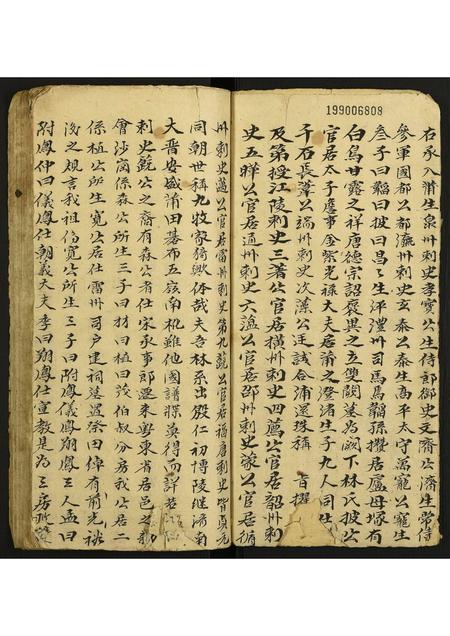 199006808
右丞入莆生泉州刺史孝寶公生侍郎御史文齊公濟生常侍
參軍國都公都瀛州刺史玄泰公泰生高平太守萬寵公寵生
叁子曰韜曰披曰昌昌生平澧州司馬韜孫攢居廬母塚有
白烏甘露之祥唐德宗詔褒異之立雙闕號為闕下林氏披公
官居太子詹事金紫光祿大夫居莆之澄渚生子九人同仕
千石長葦公端州刺史次藻公試合浦還珠稱
及第授江陵刺史三著公官居橫州刺史四薦公官居韶州刺
史五曄公官居通州刺史六蘊公官居邵州刺史蒙公官居循
州刺史邁公官居雷州刺史第九蔇公官居福唐刺史皆貞元
同朝世稱九牧家猗歟休哉夫吾林系出殷仁初博陵繼濟南
大晉安盛莆田棊布五嶺南机雖他國譜牒莫得而詳若
刺史公之裔有森公者仕宋承事郎遷來粵東省居邑之
會沙崗係森公所生三子曰材曰植曰茂伯叔分房我公居二
係植公所生寬公居仕雷州司戶建祠堂置祭田倬有前光裕
後之規言我祖伯寬公所生三子曰附鳳儀鳳翔鳳三人孟曰
附鳳仲曰儀鳳仕朝義大夫季曰翔鳳仕宣教是為三房